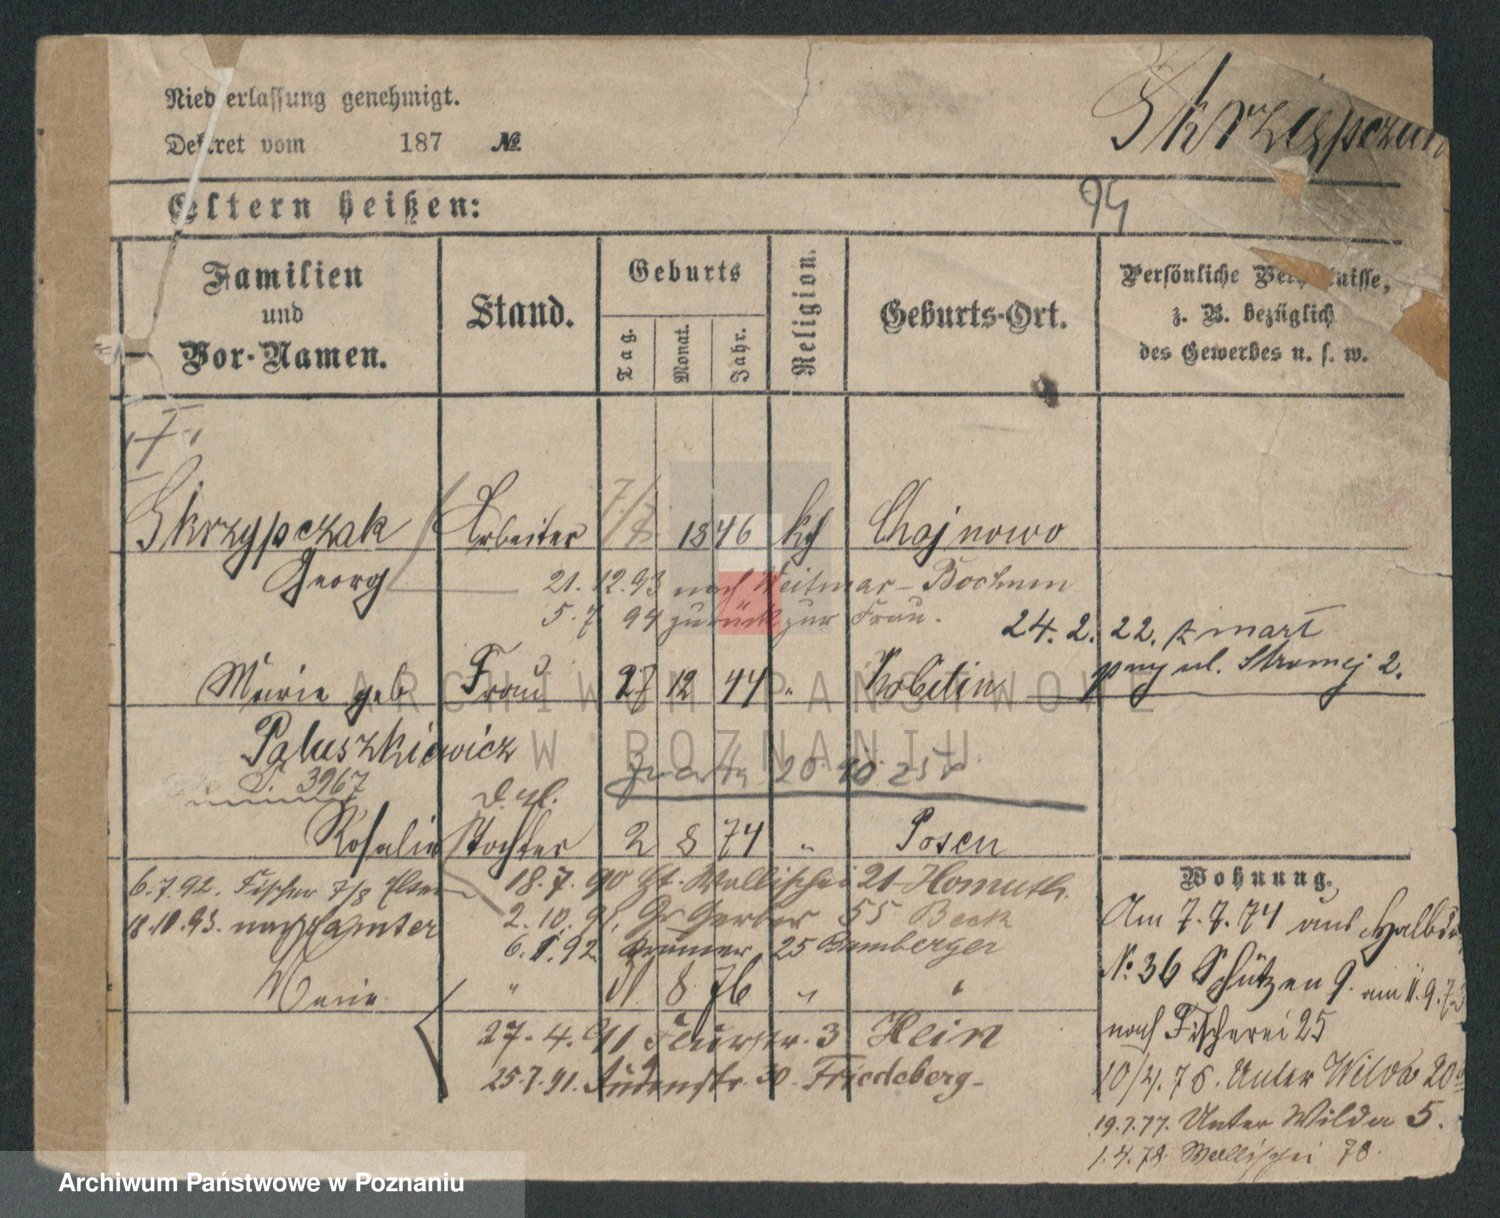 Niederlassung genehmigt.
Skrzypczak
Dekret vom 187 №
94
Eltern heißen:
Familien und Vor-Namen.
Stand.
Geburts
Tag.
Monat.
Jahr.
Religion.
Geburts-Ort.
Persönliche Verhältnisse,
z. B. bezüglich
des Gewerbes u. s. w.
Skrzypczak Arbeiter 1846 kth Chojnowo
Georg
21. 12. 93 nach Weitmar - Bochum
5. 7 94 zurück zur Frau.
24. 2. 22. zmarł
ul. Stromej 2.
Marie geb Frau 27 12 44 " Kobelin
Paluszkiewicz
3967
20 10 25
d. ul.
Rosalie Tochter 2 8 74 " Posen
6. 7. 92. Fischer 7/8
18. 7. 90 Wallischei 21 Homuth.
18. 10. 93. nach Samter
2. 10. 91. Gr Gerber 55 Beck
6. 1. 92 Krämer 25 Bamberger
Marie " 8 76 " "
27. 4. 91 3 Hein
25. 7. 91. 30 Friedeberg
Wohnung.
Am 7. 7. 74 aus
№ 36 Schützen 9. am 11. 9. 75
nach Fischerei 25
10/4. 76. Unter Wilda 20
19. 7. 77. Unter Wilda 5.
1. 4. 78 Wallischei 78.
ARCHIWUM PAŃSTWOWE
W POZNANIU
Archiwum Państwowe w Poznaniu